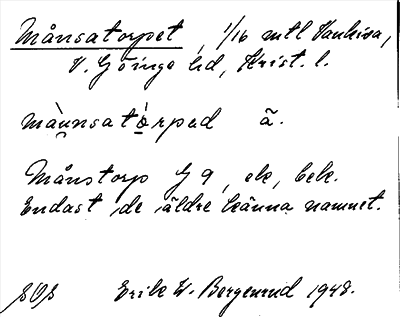 Månsatorpet, 1/16 mtl Vankiva,
V. Göinge hd, Krist. l.
màu̯nsatòrpəd ã.
Månstorp G 9, ek, bek.
Endast de äldre känna namnet.
SOS Erik W. Bergenrud 1948.